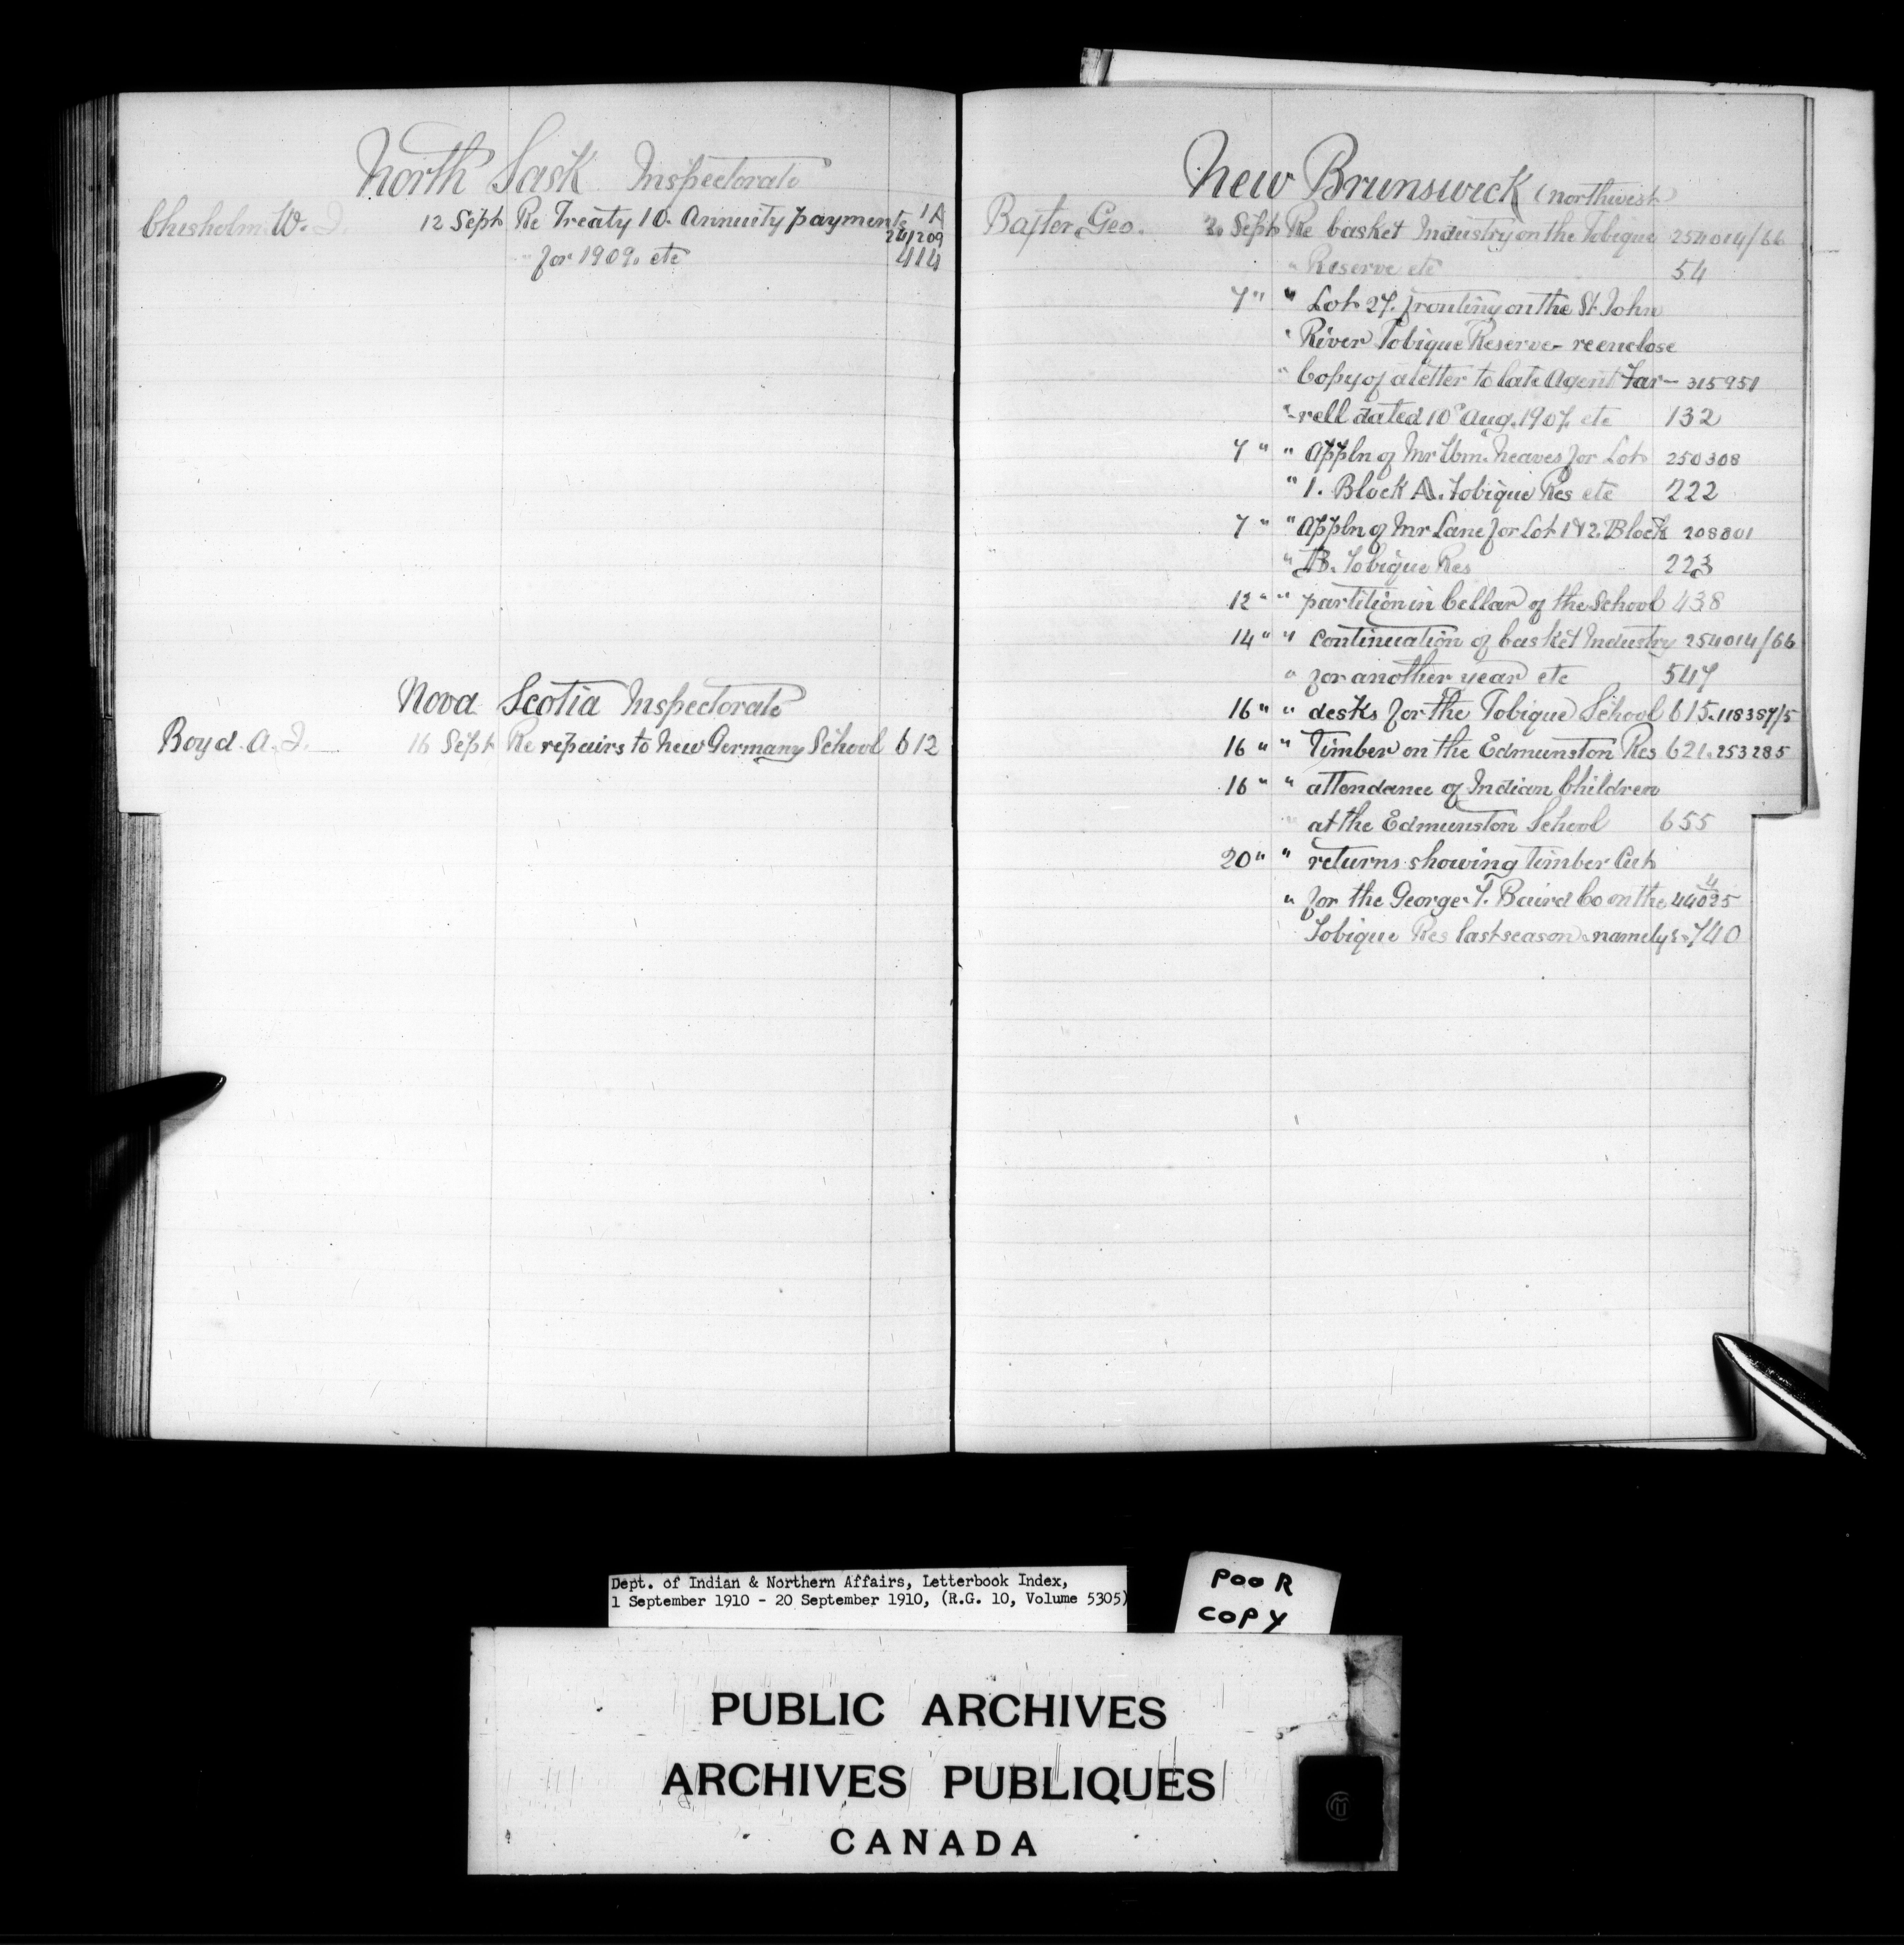 North Sask Inspectorate
Chisholm W. J. 12 Sept Re Treaty 10. Annuity payments 1A
241209
" for 1909. etc 414
Nova Scotia Inspectorate
Boyd. A. J. 16 Sept Re repairs to New Germany School 612
New Brunswick (northwest)
Baxter Geo. 2 Sept Re basket Industry on the Tobique 254014/66
" Reserve etc 54
7 " " Lot 27. fronting on the St John
" River Tobique Reserve - reenclose
" Copy of a letter to late Agent Far- 315951
"-rell dated 10 Aug. 1907. etc 132
7 " " Appln of Mr Wm. Neaves for Lot 250308
" 1. Block A. Tobique Res etc 222
7 " " Appln of Mr Lane for Lot 1 & 2. Block 208801
" B. Tobique Res 223
12 " " partition in Cellar of the School 438
14 " " continuation of basket Industry 254014/66
" for another year etc 547
16 " " desks for the Tobique School 615. 118387/5
16 " " Timber on the Edmunston Res 621. 253285
16 " " attendance of Indian Children
" at the Edmunston School 655
20 " " returns showing timber Cut
4
" for the George. T. Baird Co on the 44025
Tobique Res last season namely:- 740
Dept. of Indian & Northern Affairs, Letterbook Index,
1 September 1910 - 20 September 1910, (R.G. 10, Volume 5305)
POOR
COPY
PUBLIC ARCHIVES
ARCHIVES PUBLIQUES
CANADA